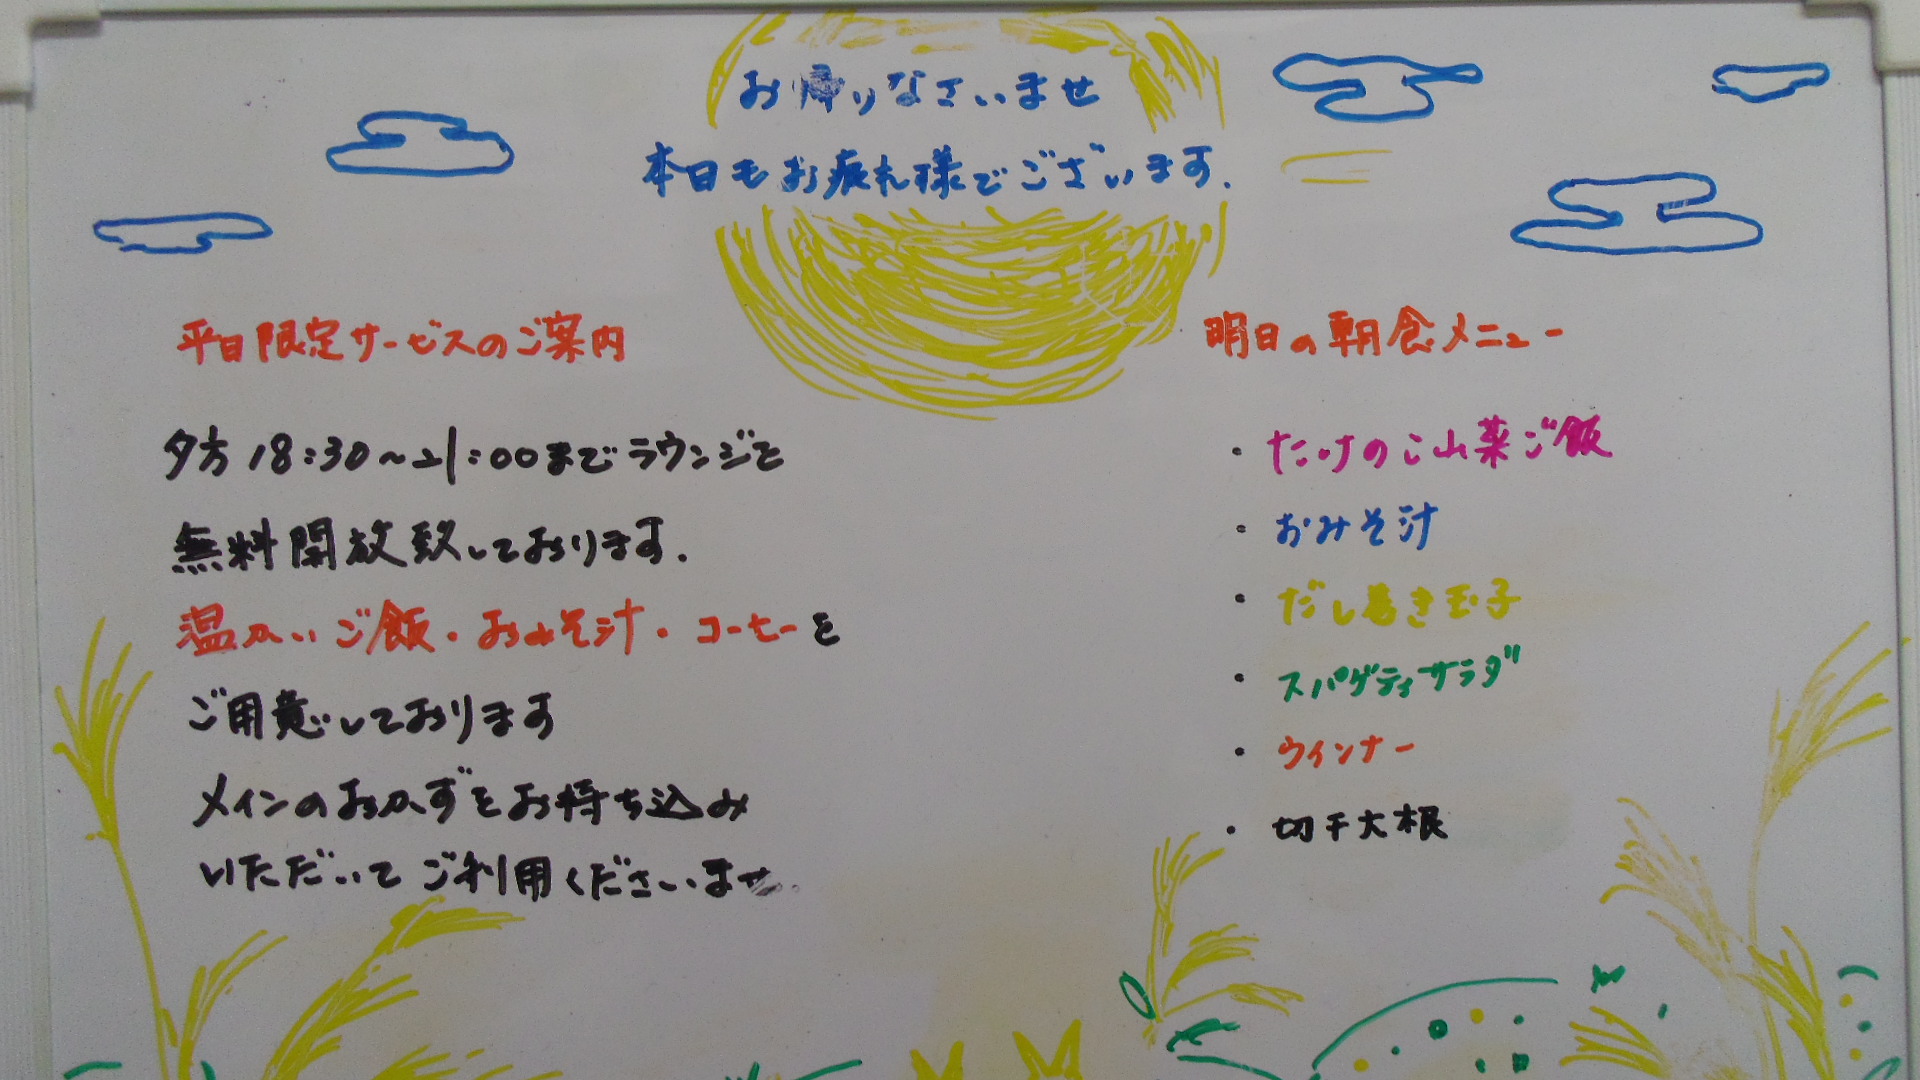 お帰りなさいませ
本日もお疲れ様でございます.
平日限定サービスのご案内
夕方 18:30~21:00までラウンジを
無料開放致しております.
温かいご飯・おみそ汁・コーヒーを
ご用意しております
メインのおかずをお持ち込み
いただいてご利用くださいませ.
明日の朝食メニュー
・たけのこ山菜ご飯
・おみそ汁
・だし巻き玉子
・スパゲティサラダ
・ウインナー
・切干大根